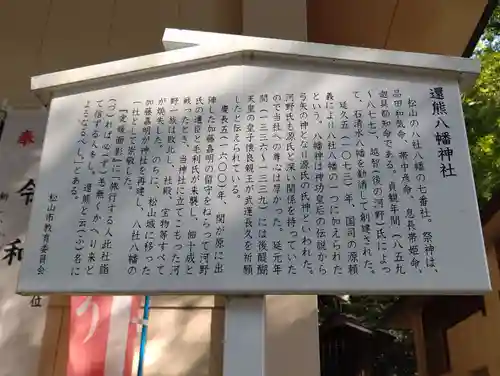 還熊八幡神社
松山の八社八幡の七番社。祭神は、
品田和気命、帯中彦命、息長帯姫命、
迦具都知命である。貞観年間（八五九
～八七七）、越智（後の河野）氏によっ
て、石清水八幡を勧請して創建された。
延久五（一〇七三）年、国司の源頼
義により八社八幡の一つに加えられた
という。八幡神は神功皇后の伝説から
弓矢の神となり源氏の氏神といわれた。
河野氏も源氏と深い関係を持っていた
ので当社への尊心は厚かった。延元年
間（一三三六～一三三九）には後醍醐
天皇の皇子懐良親王が武運長久を祈願
したと伝えられている。
慶長五（一六〇〇）年、関が原に出
陣した加藤嘉明の留守をねらって河野
氏の遺臣と毛利氏が来襲し、佃十成と
戦ったとき、当神社に立てこもった河
野一族は敗北し、社殿、宝物等すべて
が焼失した。のち、松山城に移った
加藤嘉明が神社を再建し、八社八幡の
一社として崇敬した。
『愛媛面影』に「旅行する人此社詣
づれば必（ず）恙無くかへり来と
て信る人多し。還熊と云（ふ）名に
よるなるべし」とある。
松山市教育委員会
奉
令和